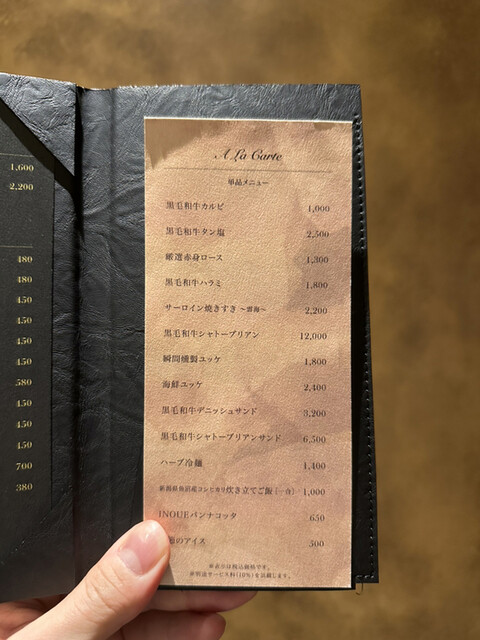 1,600
2,200
480
480
450
450
450
450
580
450
450
450
700
380
A La Carte
単品メニュー
黒毛和牛カルビ 1,000
黒毛和牛タン塩 2,500
厳選赤身ロース 1,300
黒毛和牛ハラミ 1,800
サーロイン焼きすき 〜雲海〜 2,200
黒毛和牛シャトーブリアン 12,000
瞬間燻製ユッケ 1,800
海鮮ユッケ 2,400
黒毛和牛デニッシュサンド 3,200
黒毛和牛シャトーブリアンサンド 6,500
ハーブ冷麺 1,400
新潟県魚沼産コシヒカリ炊き立てご飯(一合) 1,000
INOUEパンナコッタ 650
のアイス 500
※表示は税込価格です。
※別途サービス料(10%)を頂戴します。